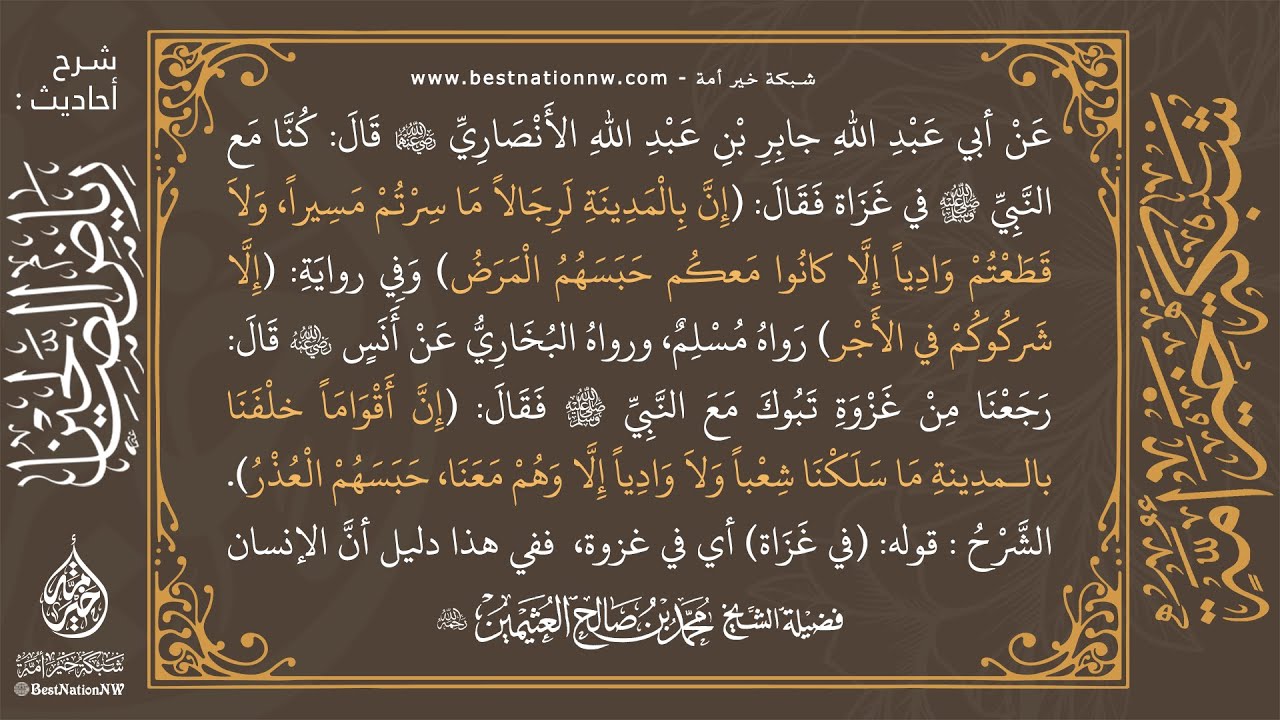 شبكة خير أمة - www.bestnationnw.com
عَنْ أبي عَبْدِ اللهِ جابِرِ بْنِ عَبْدِ اللهِ الأَنْصَارِيِّ رضي الله عنهما قَالَ: كُنَّا مَع
النَّبِيِّ ﷺ في غَزَاة فَقَالَ: (إِنَّ بِالْمَدِينَةِ لَرِجَالاً مَا سِرْتُمْ مَسِيراً، وَلاَ
قَطَعْتُمْ وَادِياً إِلَّا كانُوا مَعكُم حَبَسَهُمُ الْمَرَضُ) وَفِي روايَةِ: (إِلَّا
شَركُوكُمْ في الأَجْر) رَواهُ مُسْلِمٌ، ورواهُ البُخَارِيُّ عَنْ أَنَسٍ رضي الله عنه قَالَ:
رَجَعْنَا مِنْ غَزْوَةِ تَبُوكَ مَعَ النَّبِيِّ ﷺ فَقَالَ: (إِنَّ أَقْوَامَاً خلْفَنَا
بالـمدِينةِ مَا سَلَكْنَا شِعْباً وَلاَ وَادِياً إِلَّا وَهُمْ مَعَنَا، حَبَسَهُمْ الْعُذْرُ).
الشَّرْحُ : قوله: (في غَزَاة) أي في غزوة، ففي هذا دليل أنَّ الإنسان
فضيلة الشيخ محمد بن صالح العثيمين رحمه الله
شرح
أحاديث :
رياض الصالحين
خير أمة
شبكة خير أمة
BestNationNW
شبكة خير أمة